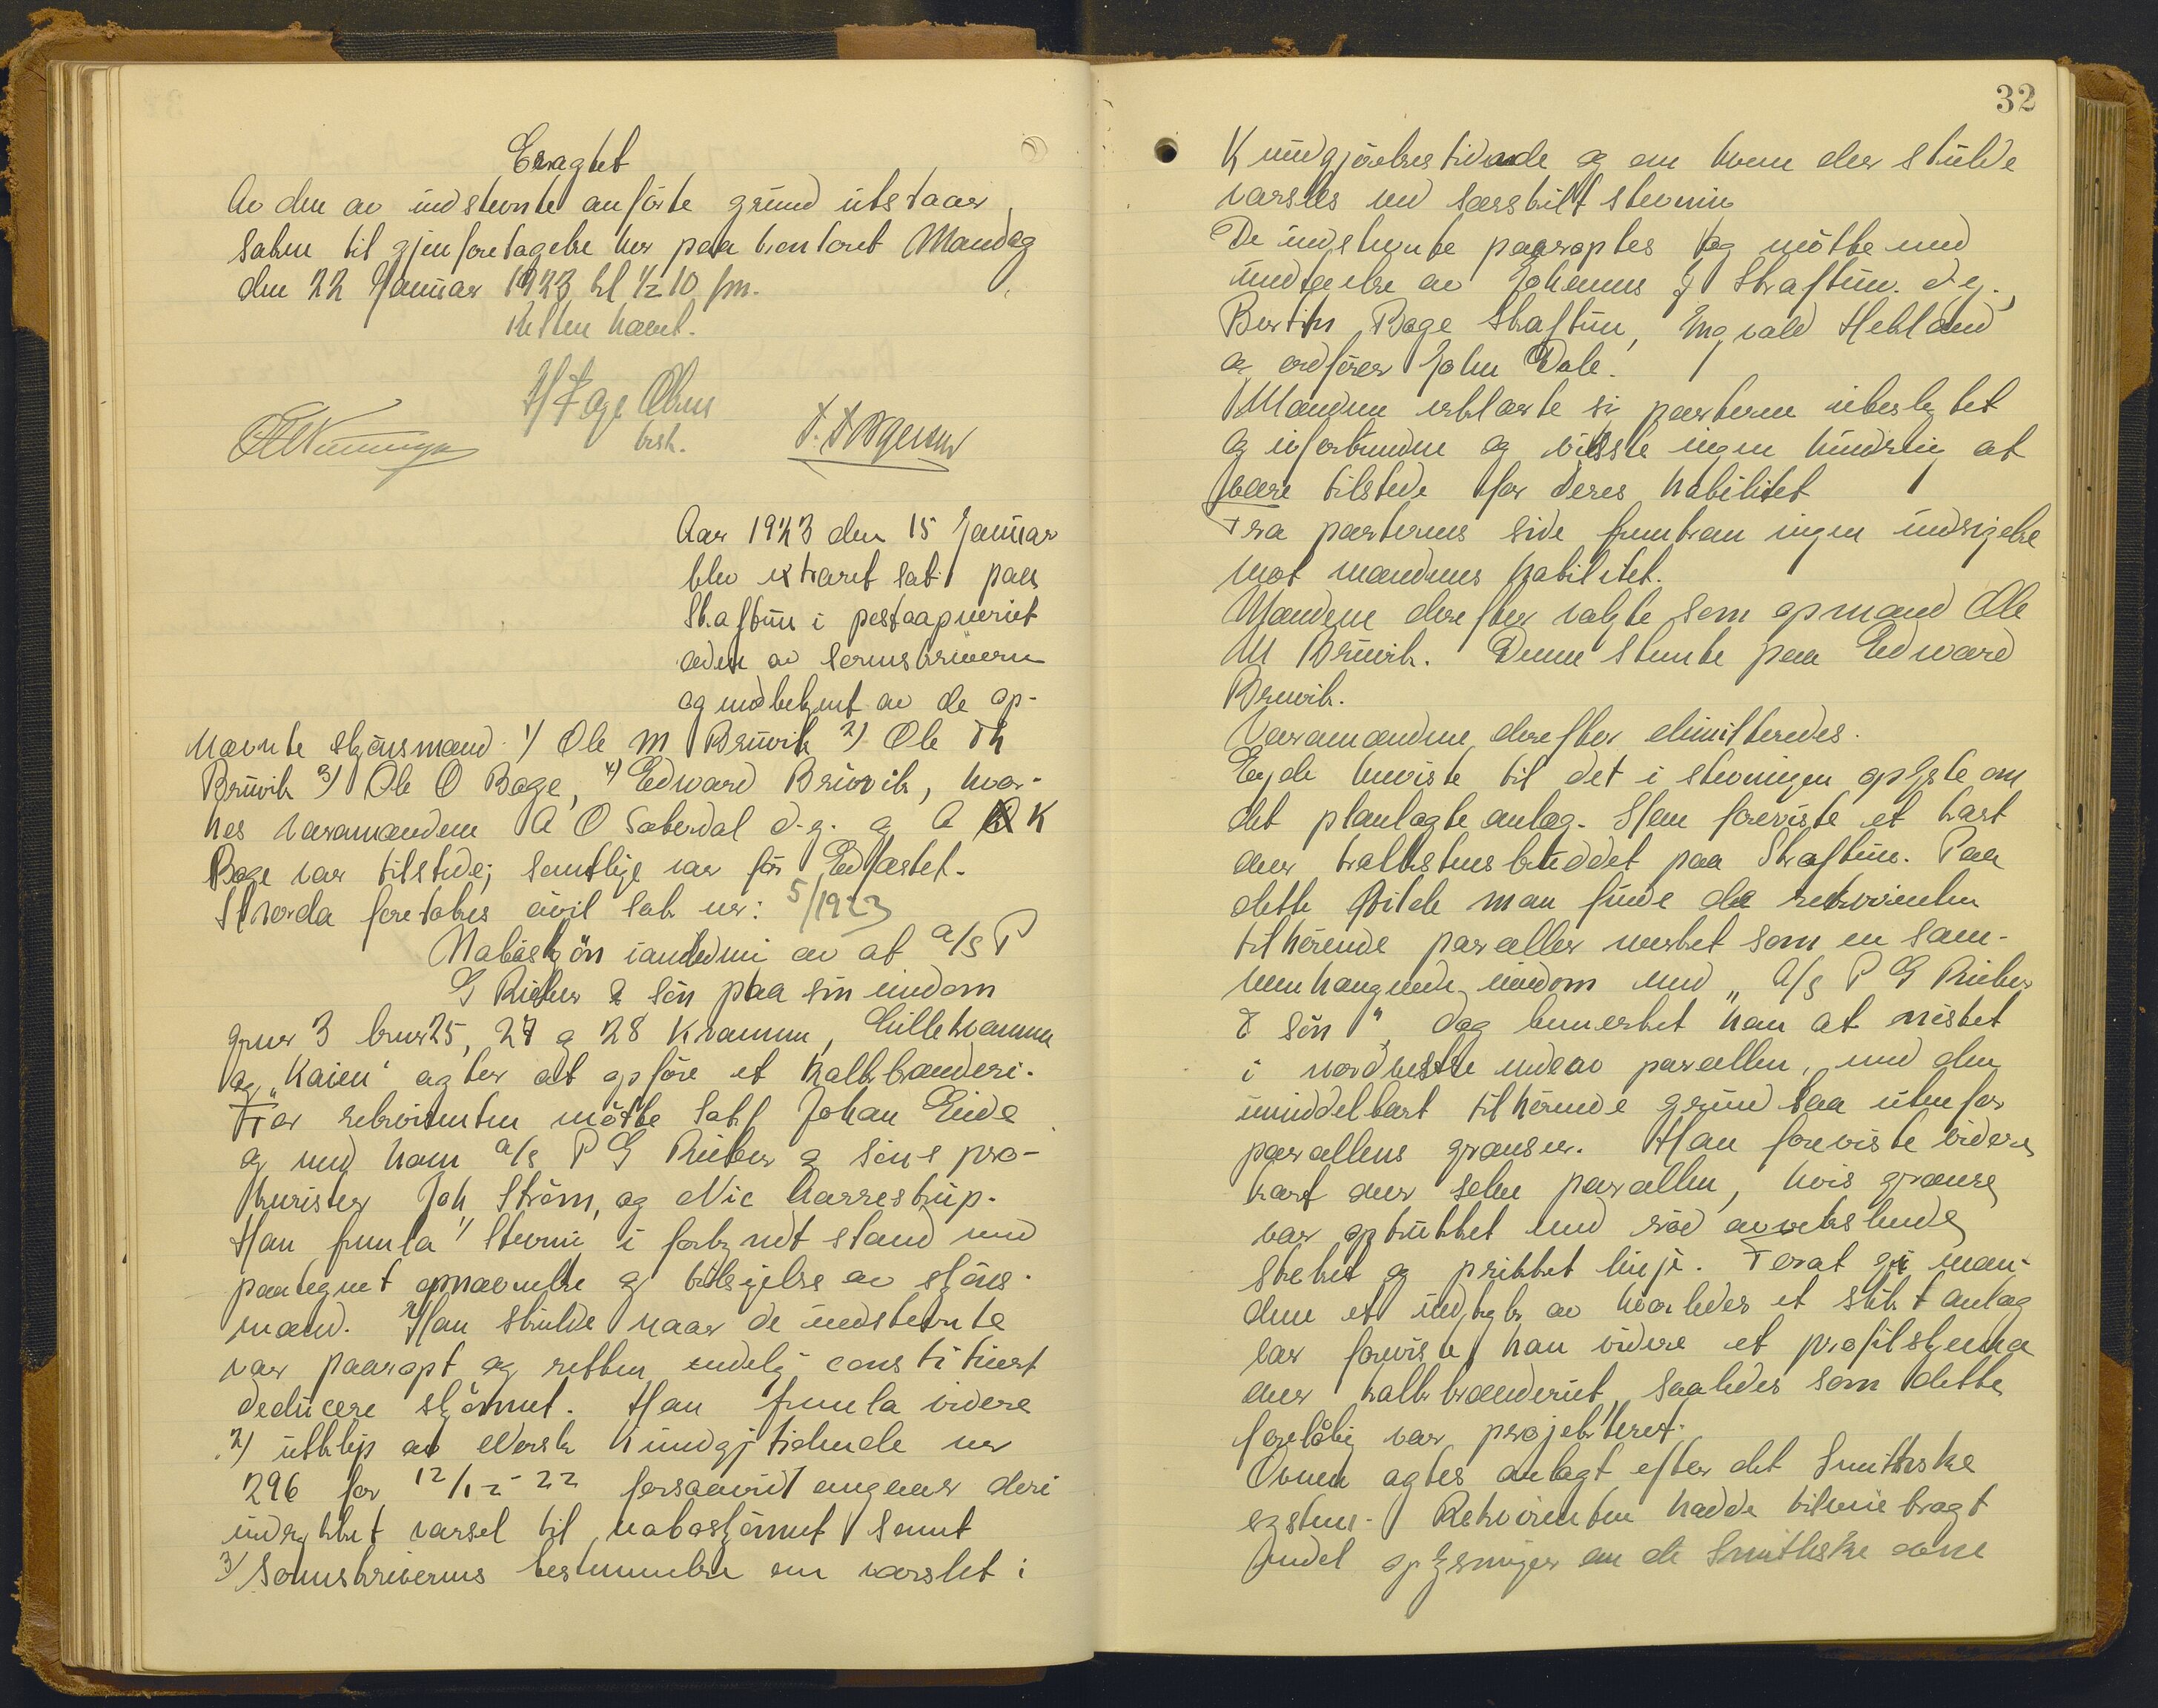 Eragtet
Av den av indstevnte anförte grund utstaar
saken til gjenforetagelse her paa kontoret Mandag
den 22 Januar 1923 kl ½ 10 fm.
Retten hævet.
H Fage Olsen
besh.
T. Torgersen
Aar 1923 den 15 Januar
blev extraret sat paa
Skaftun i pestaapneriet
ledet av sorenskriveren
og medbetjent av de op-
nævnte skjönsmænd 1) Ole M Bruvik 2) Ole Th
Bruvik 3) Ole O Boge, 4) Edward Bruvik, hvor-
hos varamændene A O Sæterdal d.y. og O K
Boge var tilstede; samtlige var för Edfæstet.
Hvorda foretokes civil sak nr: 5/1923
Naboskjön i anledning av at a/s P
G Rieber & sön paa sin eiendom
gnr 3 bnr 25, 27 og 28 Kvamme, Lillekvamme
og "Kaien" agter at opföre et kalkbrænderi.
For rekvirenten mötte sakf Johan Eide
og med ham a/s P G Rieber og söns pro-
kurister Joh Ström, og Nic Aarrestrup.
Han fremla 1) Stevning i forkyndt stand med
paategnet opnævnelse og tilsigelse av skjöns-
mænd. Han skulde naar de indstevnte
var paaropt og retten endelig constituert
deducere skjönnet. Han fremla videre
2) utklip av Norsk Kundgj tidende nr
296 for 12/12 - 22 forsaavidt angaar deri
indrykket varsel til naboskjönnet samt
3) Sorenskriverens bestemmelse om varslet i
32
Kundgjörelsestidende og om hvem der skulde
varsles med særskilt stevning
De indstevnte paaroptes og mötte med
undtagelse av Johannes J Skaftun d.y.,
Bertin Boge Skaftun, Ingvald Hekland
og ordförer John Dale.
Mændene erklærte sig parterne ubeslegtet
og uforbundne og visste ingen hindring at
være tilstede for deres habilitet
Fra parternes side fremkom ingen indsigelse
mot mændenes habilitet.
Mændene derefter valgte som opmand Ole
M Bruvik. Denne stemte paa Edward
Bruvik.
Varamændene derefter dimitteredes.
Eide henviste til det i stevningen oplyste om
det planlagte anlæg. Han foreviste et kart
over kalkstensbruddet paa Skaftun. Paa
dette vilde man finde de rekvirenten
tilhörende parceller merket som en sam-
menhængende eiendom med "a/s P G Rieber
& sön". Dog bemerket han at nöstet
i nordvestre ende av parcellen, med den
umiddelbart tilhörende grund laa utenfor
parcellens grænser. Han foreviste videre
kart over selve parcellen, hvis grænse
var optrukket med röd avvekslende
streket og prikket linje. For at gi mæn-
dene et indtryk av hvorledes et slikt anlæg
var foreviste han videre et profilskema
over kalkbrænderiet, saaledes som dette
forelöbig var projektert.
Ovnen agtes anlagt efter det Smithske
system. Rekvirenten hadde tilveiebragt
endel oplysninger om de Smithske ovne